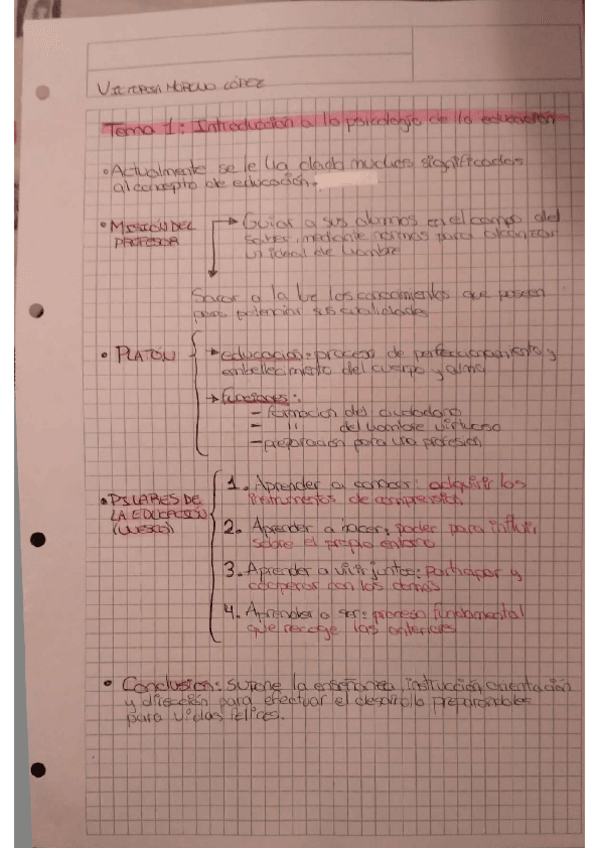 MORENO LÓPEZ
Tema 1: Introducción a la psicología de la educación
• Actualmente se le ha dado muchos significados
al concepto de educación.
• MISIÓN DEL
PROFESOR
→ Guiar a sus alumnos en el campo del
saber, mediante normas para alcanzar
un ideal de hombre
Sacar a la luz los conocimientos que poseen
para potenciar sus cualidades
• PLATÓN
→ educación: proceso de perfeccionamiento y
embellecimiento del cuerpo y alma
→ funciones:
– formación del ciudadano
– " del hombre virtuoso
– preparación para una profesión
• PILARES DE
LA EDUCACIÓN
(UNESCO)
1. Aprender a conocer: adquirir los
instrumentos de comprensión
2. Aprender a hacer: poder para influir
sobre el propio entorno
3. Aprender a vivir juntos: participar y
cooperar con los demás
4. Aprender a ser: proceso fundamental
que recoge las anteriores
• Conclusión: supone la enseñanza, instrucción, orientación
y dirección para efectuar el desarrollo
para vidas felices.